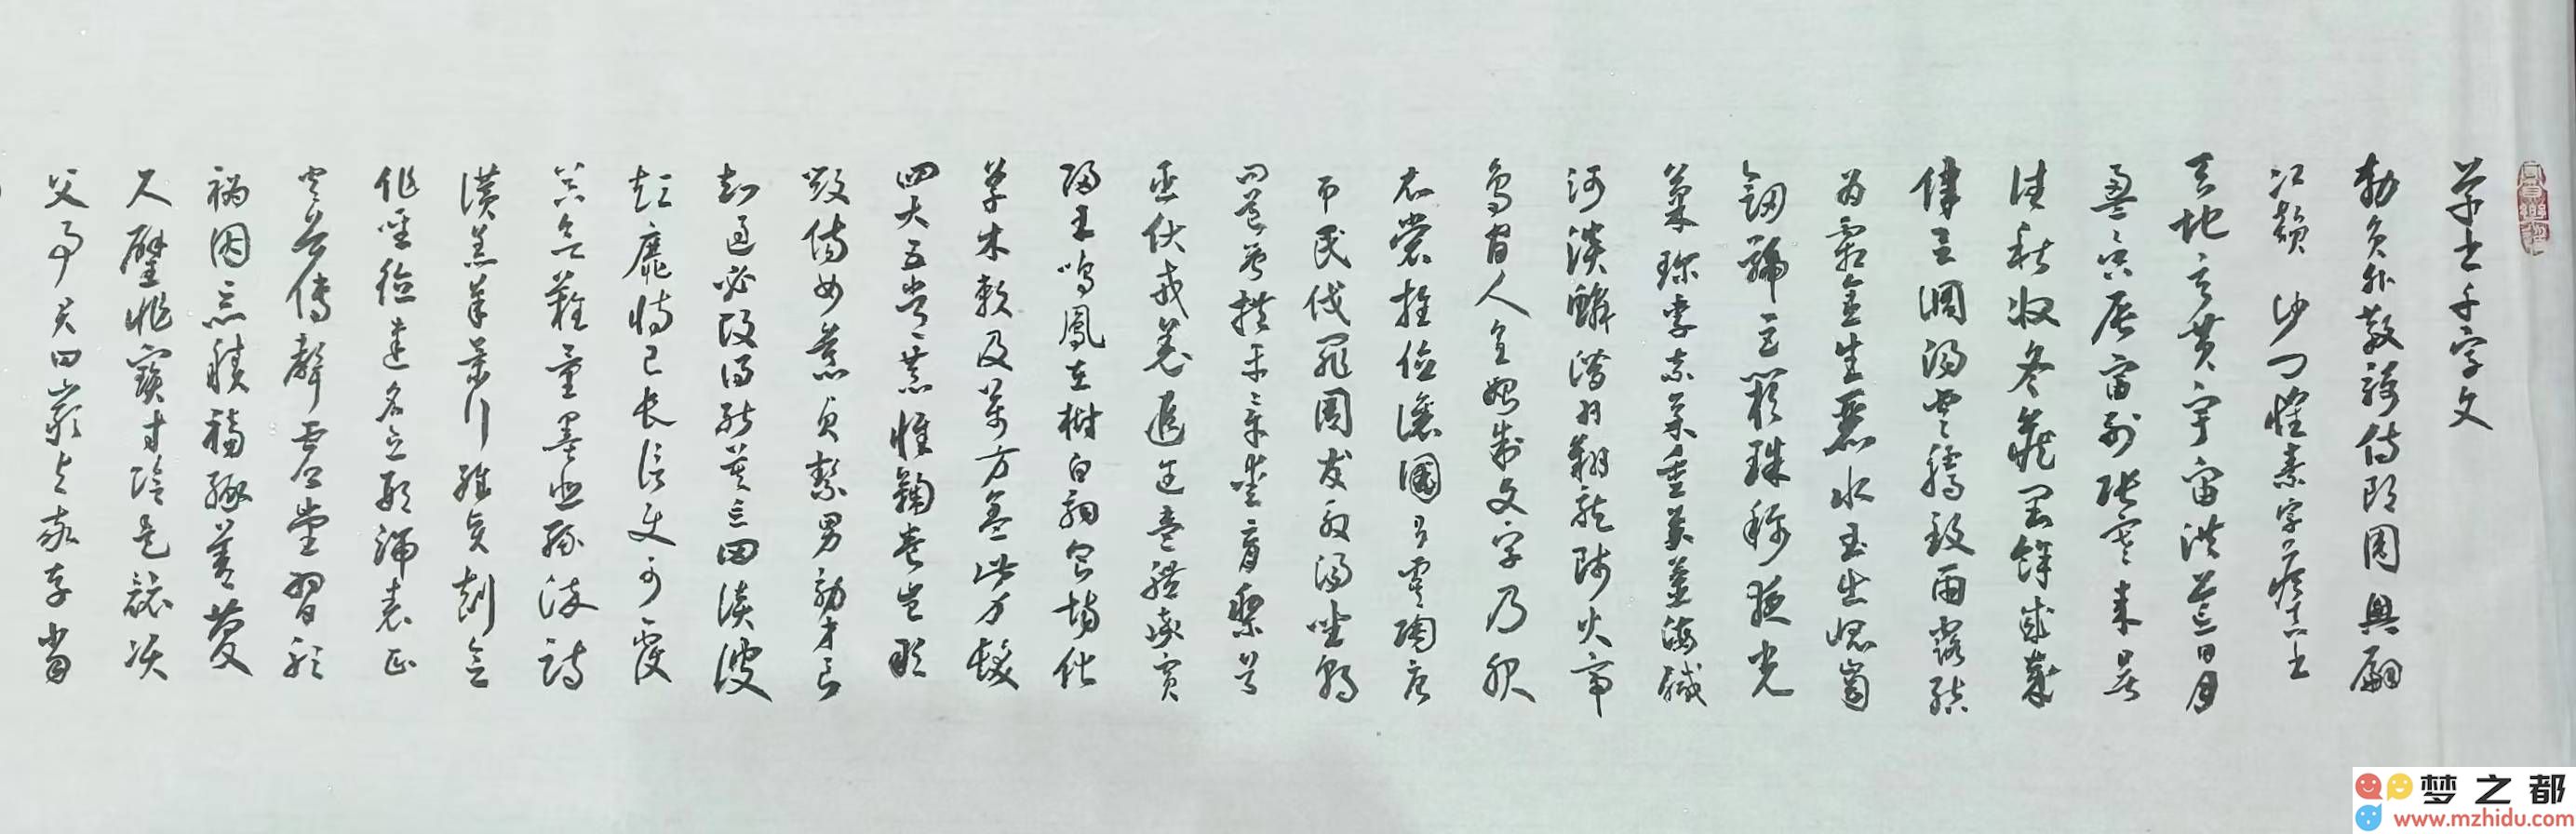 草書千字文
勅員外散騎侍郎周興嗣
次韻 沙門懷素字藏真書
天地玄黃宇宙洪荒日月
盈昃辰宿列張寒來暑
往秋收冬藏閏餘成歲
律呂調陽雲騰致雨露結
為霜金生麗水玉出崑崗
劒號巨闕珠稱夜光
菓珍李柰菜重芥薑海鹹
河淡鱗潛羽翔龍師火帝
鳥官人皇始制文字乃服
衣裳推位讓國有虞陶唐
弔民伐罪周發殷湯坐朝
問道垂拱平章愛育黎首
臣伏戎羌遐迩壹體率賓
歸王鳴鳳在樹白駒食場化
草木賴及萬方蓋此身髮
四大五常恭惟鞠養豈敢
毀傷女慕貞潔男効才良
知過必改得能莫忘罔談彼
短靡恃己長信使可覆
器欲難量墨悲絲染詩
讚羔羊景行維賢剋念
作聖德建名立形端表正
空谷傳聲虛堂習聽
禍因惡積福緣善慶
尺璧非寶寸陰是競資
父事君曰嚴與敬孝當
梦之都
www.mzhidu.com